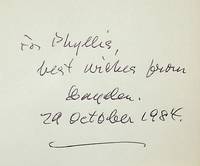 For Phyllis,
best wishes from
Hayden.
29 October 1984.